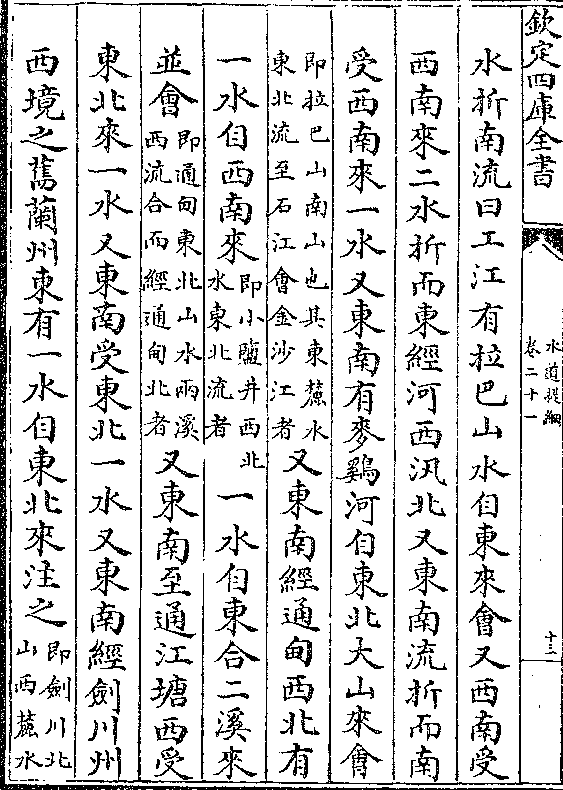 欽定四庫全書
水道提綱
卷二十一
十三
水折南流曰工江有拉巴山水自東來會又西南受
西南來二水折而東經河西汛北又東南流折而南
受西南來一水又東南有麥鷄河自東北大山來會
即拉巴山南山也其東麓水
東北流至石江會金沙江者
又東南經通甸西北有
一水自西南來
即小鹽井西北
水東北流者
一水自東合二溪來
並會
即通甸東北山水兩溪
西流合而經通甸北者
又東南至通江塘西受
東北來一水又東南受東北一水又東南經劍川州
西境之舊蘭州東有一水自東北來注之
即劍川北
山西麓水